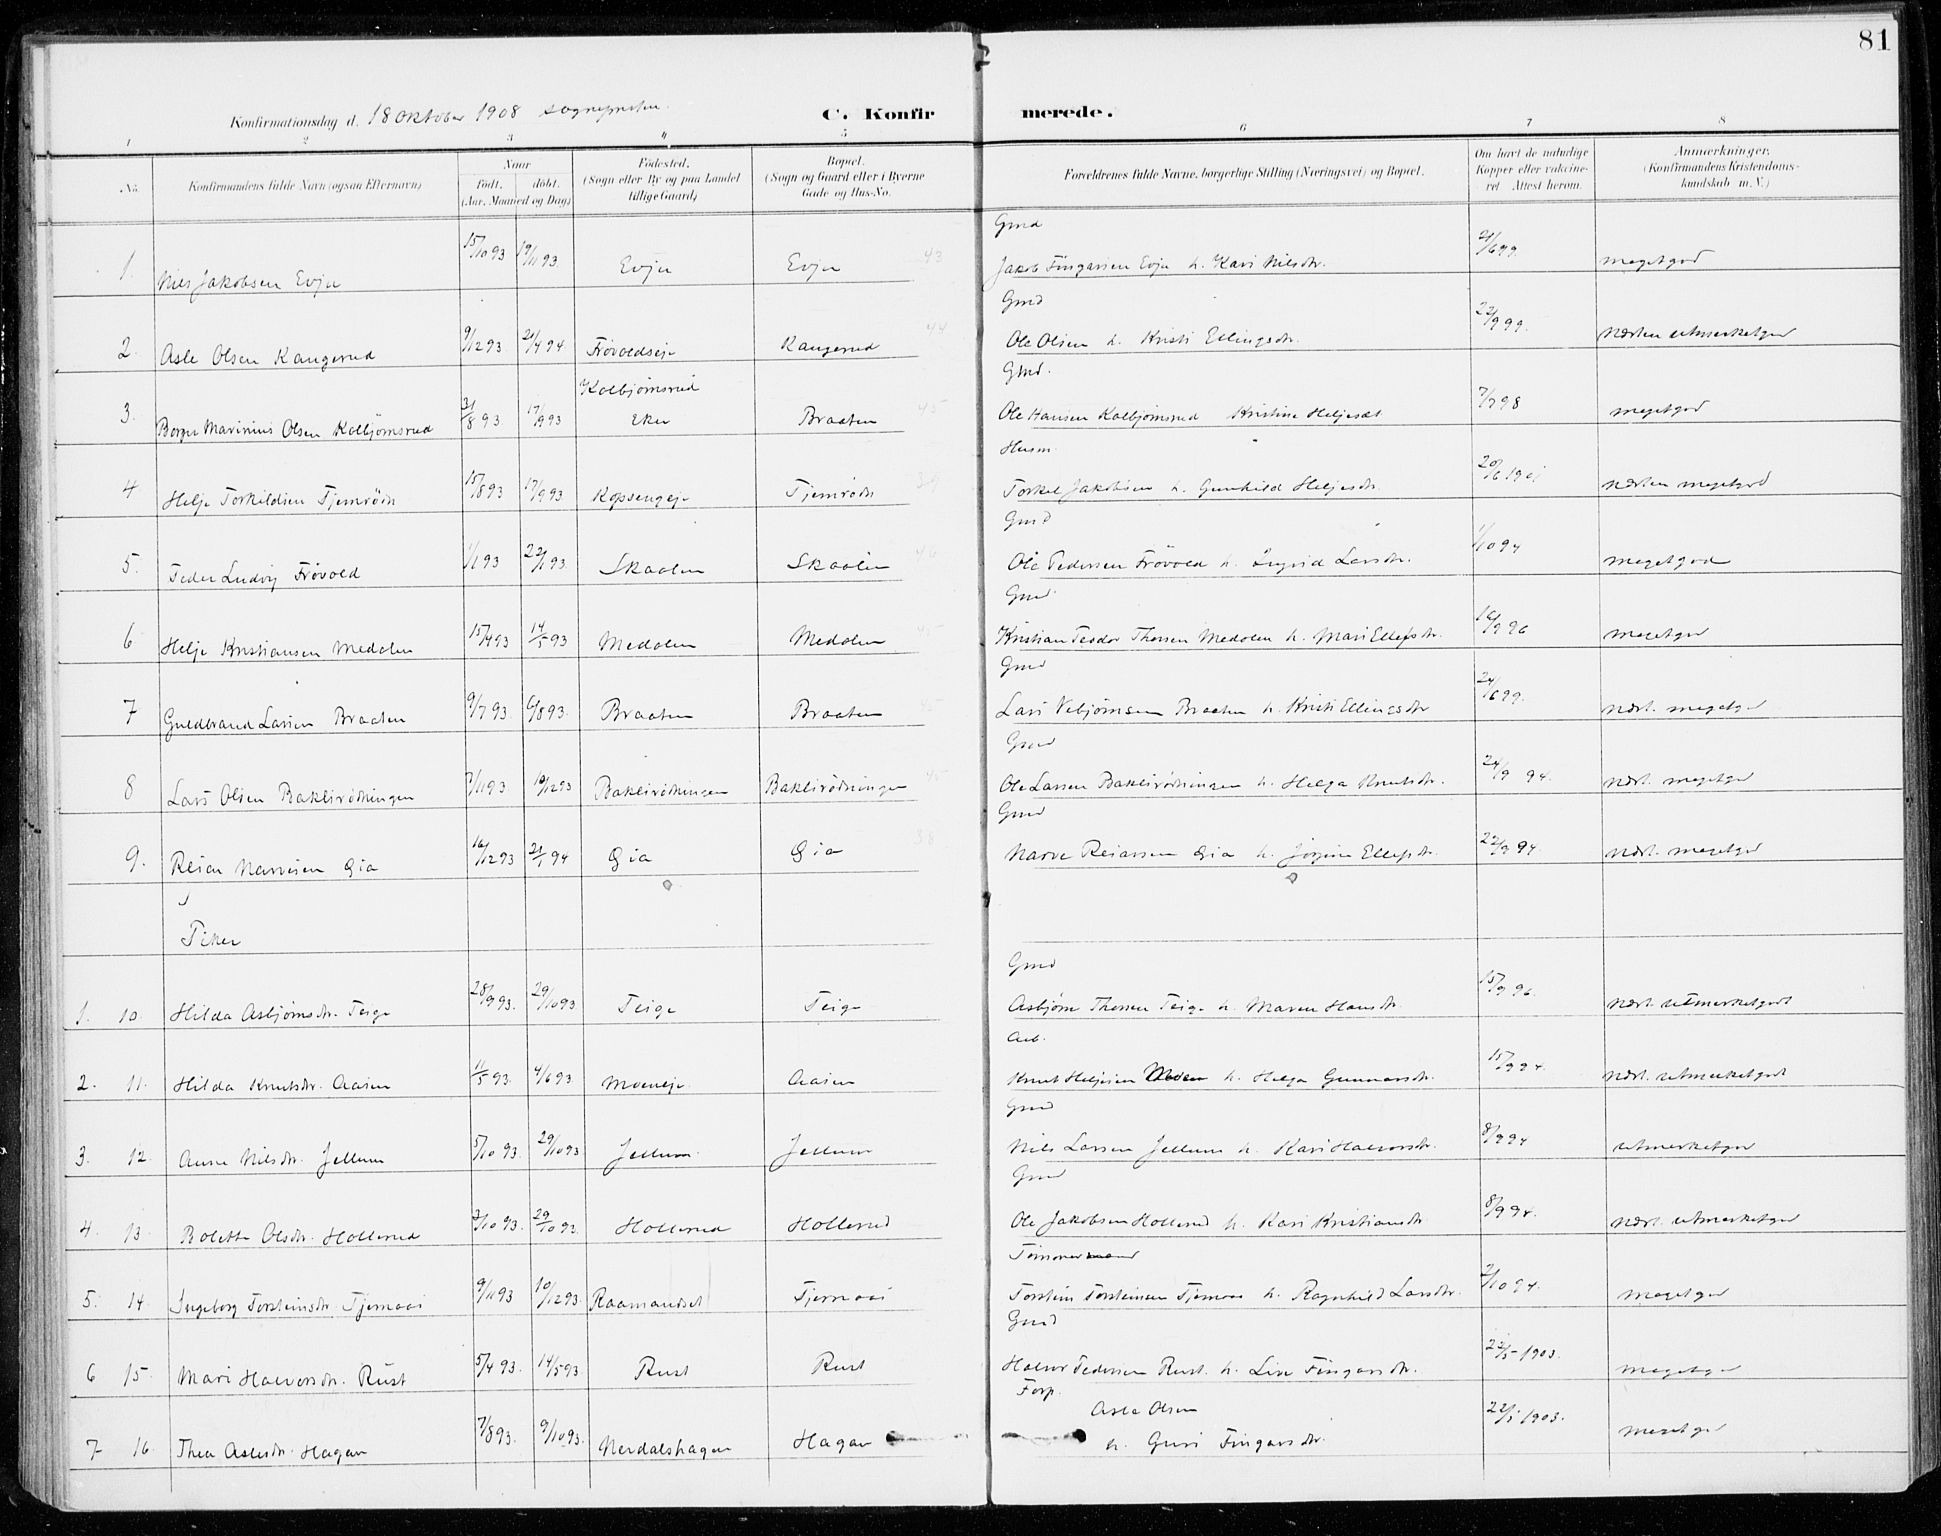 81
Konfirmationsdag d. 18 Oktober 1908 sognepresten
C. Konfirmerede.
1 2 3 4 5 6 7 8
No. Konfirmandens fulde Navn (ogsaa Efternavn) Naar født. døbt. (Aar, Maaned og Dag) Fødested. (Sogn eller By og paa Landet tillige Gaard) Bopæl. (Sogn og Gaard eller i Byerne Gade og Hus-No. Forældrenes fulde Navne, borgerlige Stilling (Næringsvei) og Bopæl. Om havt de naturlige Kopper eller vakcineret Attest herom. Anmærkninger. (Konfirmandens Kristendomskundskab m. V.)
Gmd
1. Nils Jakobsen Evju 15/10 93 19/11 93. Evju Evju 43 Jakob Fingarsen Evju h. Kari Nilsdtr. 21/6 99. megetgod
Gmd
2. Asle Olsen Kangerud 9/12 93. 21/4 94 Frövoldseje Kangerud 44 Ole Olsen h. Kristi Ellingsdtr. 22/9 99. næsten utmerketgod
Gmd.
3. Borger Marinius Olsen Kolbjörnsrud 31/8 93. 17/9 93 Kolbjörnsrud Eker Braaten 45 Ole Hansen Kolbjörnsrud Kristine Heljesdt 7/7 98 megetgod
Husm.
4 Helje Torkildsen Tjernrödn 15/8 93 17/9 93 Kopsengeje Tjernrödn Torkel Jakobsen h. Gunhild Heljesdtr. 20/6 1901 næsten megetgod
Gmd
5. Peder Ludvig Frövold 1/1 93 22/1 93. Skaalen Skaalen 46 Ole Pedersen Frövold h. Ingrid Larsdtr. 1/10 94 megetgod
Gmd
6 Helje Kristiansen Medalen 15/4 93 14/5 93 Medalen Medalen Kristian Teodor Thorsen Medalen h. Mari Ellefsdtr. 16/9 96 megetgod
Gmd
7 Guldbrand Larsen Braaten 9/7 93. 6/8 93. Braaten Braaten 45 Lars Vebjörnsen Braaten h. Kristi Ellingsdtr 24/6 99. næst. megetgod
Gmd
8 Lars Olsen Baklirödningen 7/11 93 10/12 93 Baklirödningen Baklirödningen 45 Ole Larsen Baklirödningen h. Helga Knutsdtr. 24/9 94. næst. megetgod
Gmd
9. Reiar Narvesen Gia 16/12 93 21/1 94 Gia Gia 38 Narve Reiarsen Gia h. Jörgine Ellefsdtr. 22/9 94. næst. megetgod
Piker
Gmd
1. 10. Hilda Asbjörnsdtr. Teige 28/9 93. 29/10 93 Teige Teige Asbjörn Thorsen Teige h. Maren Hansdtr. 15/9 96. næst. utmerketgodt
Arb.
2. 11. Hilda Knutsdtr. Aasen 11/5 93. 4/6 93. Moeneje Aasen Knut Heljesen Moen h. Helga Gunnarsdtr. 15/9 94. næst. utmerketgodt
Gmd
3. 12. Anne Nilsdtr. Jellum 5/10 93. 29/10 93 Jellum Jellum Nils Larsen Jellum h. Kari Halvorsdtr. 8/9 94 utmerketgod
Gmd
4. 13. Bolette Olsdtr. Hollerud 3/10 93. 29/10 93. Hollerud Hollerud Ole Jakobsen Hollerud h. Kari Kristiansdtr 8/9 94. næst. utmerketgod
Tömmermand
5. 14. Ingeborg Torsteinsdtr. Tjernaasi 9/11 93 10/12 93. Raamandset Tjernaasi Torstein Torsteinsen Tjernaas h. Ragnhild Larsdtr. 2/10 94. megetgod
Gmd
6 15. Mari Halvorsdtr. Rust 5/4 93. 14/5 93 Rust Rust Halvor Pedersen Rust h. Live Fingarsdtr. 22/5 1903. megetgod
Forp.
Asle Olsen
7 16. Thea Aslesdtr. Hagan 7/8 93. 9/10 93. Nerdalshagan Hagan h. Guri Fingarsdtr. 22/5 1903. megetgod